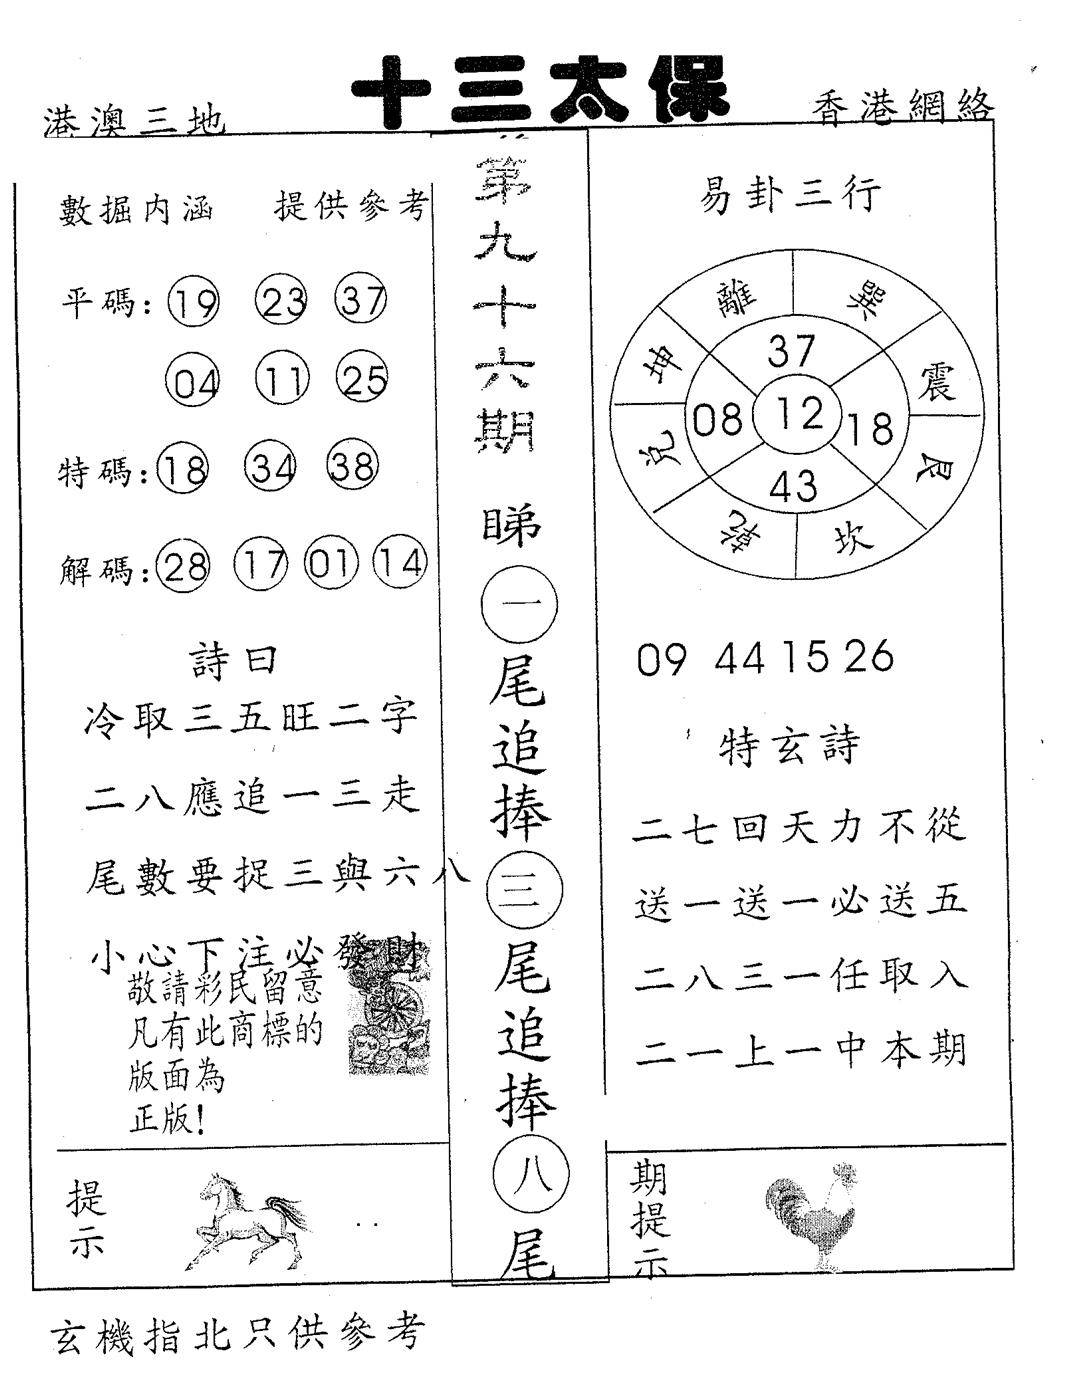 十三太保
港澳三地
香港網絡
數掘内涵 提供參考
平碼: 19 23 37
04 11 25
特碼: 18 34 38
解碼: 28 17 01 14
詩曰
冷取三五旺二字
二八應追一三走
尾數要捉三與六八
小心下注必發財
敬請彩民留意
凡有此商標的
版面為
正版!
提示
第九十六期 睇一尾追捧三尾追捧八尾
易卦三行
離 巽
坤 震
兑 艮
乾 坎
37
08 12 18
43
09 44 15 26
特玄詩
二七回天力不從
送一送一必送五
二八三一任取入
二一上一中本期
期提示
玄機指北只供參考